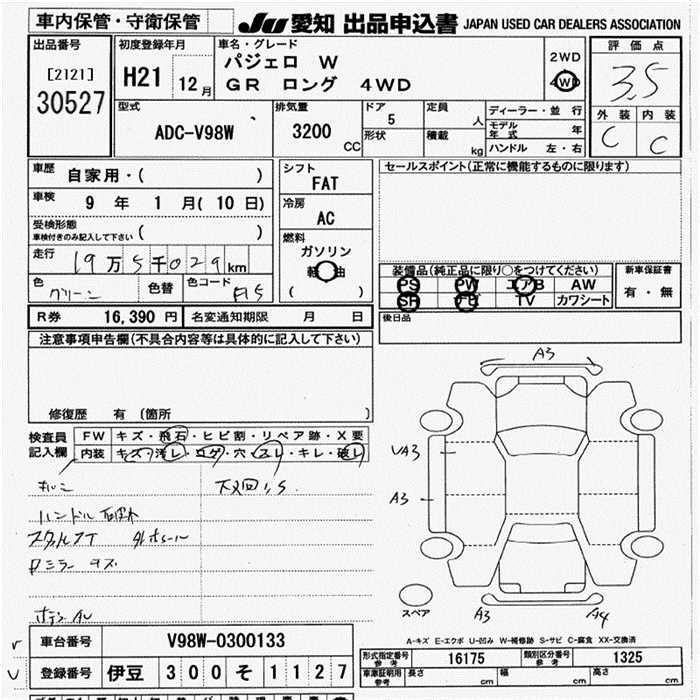 車内保管・守衛保管
JU 愛知 出品申込書 JAPAN USED CAR DEALERS ASSOCIATION
出品番号
[2121]
30527
初度登録年月
H21 12月
車名・グレード
パジェロ W
GR ロング 4WD
2WD
4WD
評価点
3.5
外装 内装
C C
型式
ADC-V98W
排気量
3200 CC
ドア 5
形状
定員 人
積載 kg
ディーラー・並行
モデル年式 年
ハンドル 左・右
車歴 自家用・( )
車検 9年 1月(10日)
受検形態
車検付きのみ記入して下さい ( )
走行 19万5千029km
色 グリーン 色替 色コード F15
シフト
FAT
冷房
AC
燃料
ガソリン
軽油
( )
セールスポイント(正常に機能するものに限ります)
装備品(純正品に限り○をつけてください)
PS PW エアB AW
SR ナビ TV カワシート
新車保証書
有・無
後日品
R券 16,390円 名変通知期限 月 日
注意事項申告欄(不具合内容等は具体的に記入して下さい)
修復歴 有 (箇所 )
検査員記入欄
FW キズ・飛石・ヒビ割・リペア跡・X要
内装 キズ・汚レ・コゲ・穴・スレ・キレ・破レ
ハンドル
A3
UA3
A3
スペア
A3 A4
A-キズ E-エクボ U-凹み W-補修跡 S-サビ C-腐食 XX-交換済
車台番号 V98W-0300133
登録番号 伊豆 300 そ 1127
形式指定番号 参考 16175
類別区分番号 参考 1325
車庫証明用 参考 長さ cm 幅 cm 高さ cm